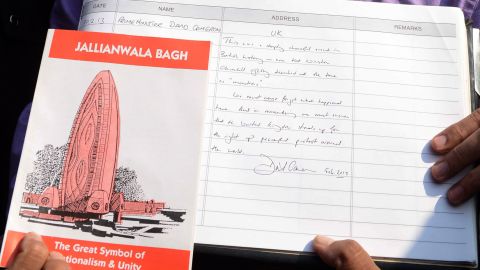 JALLIANWALA BAGH
The Great Symbol of
tionalism & Unity
DATE NAME ADDRESS REMARKS
2.13 PRIME MINISTER DAVID CAMERON UK
This was a deeply shameful event in
British history – one that Winston
Churchill rightly described at the time
as "monstrous".
We must never forget what happened
here. And in remembering we must ensure
that the United Kingdom stands up for
the right of peaceful protest around
the world.
Feb. 2013